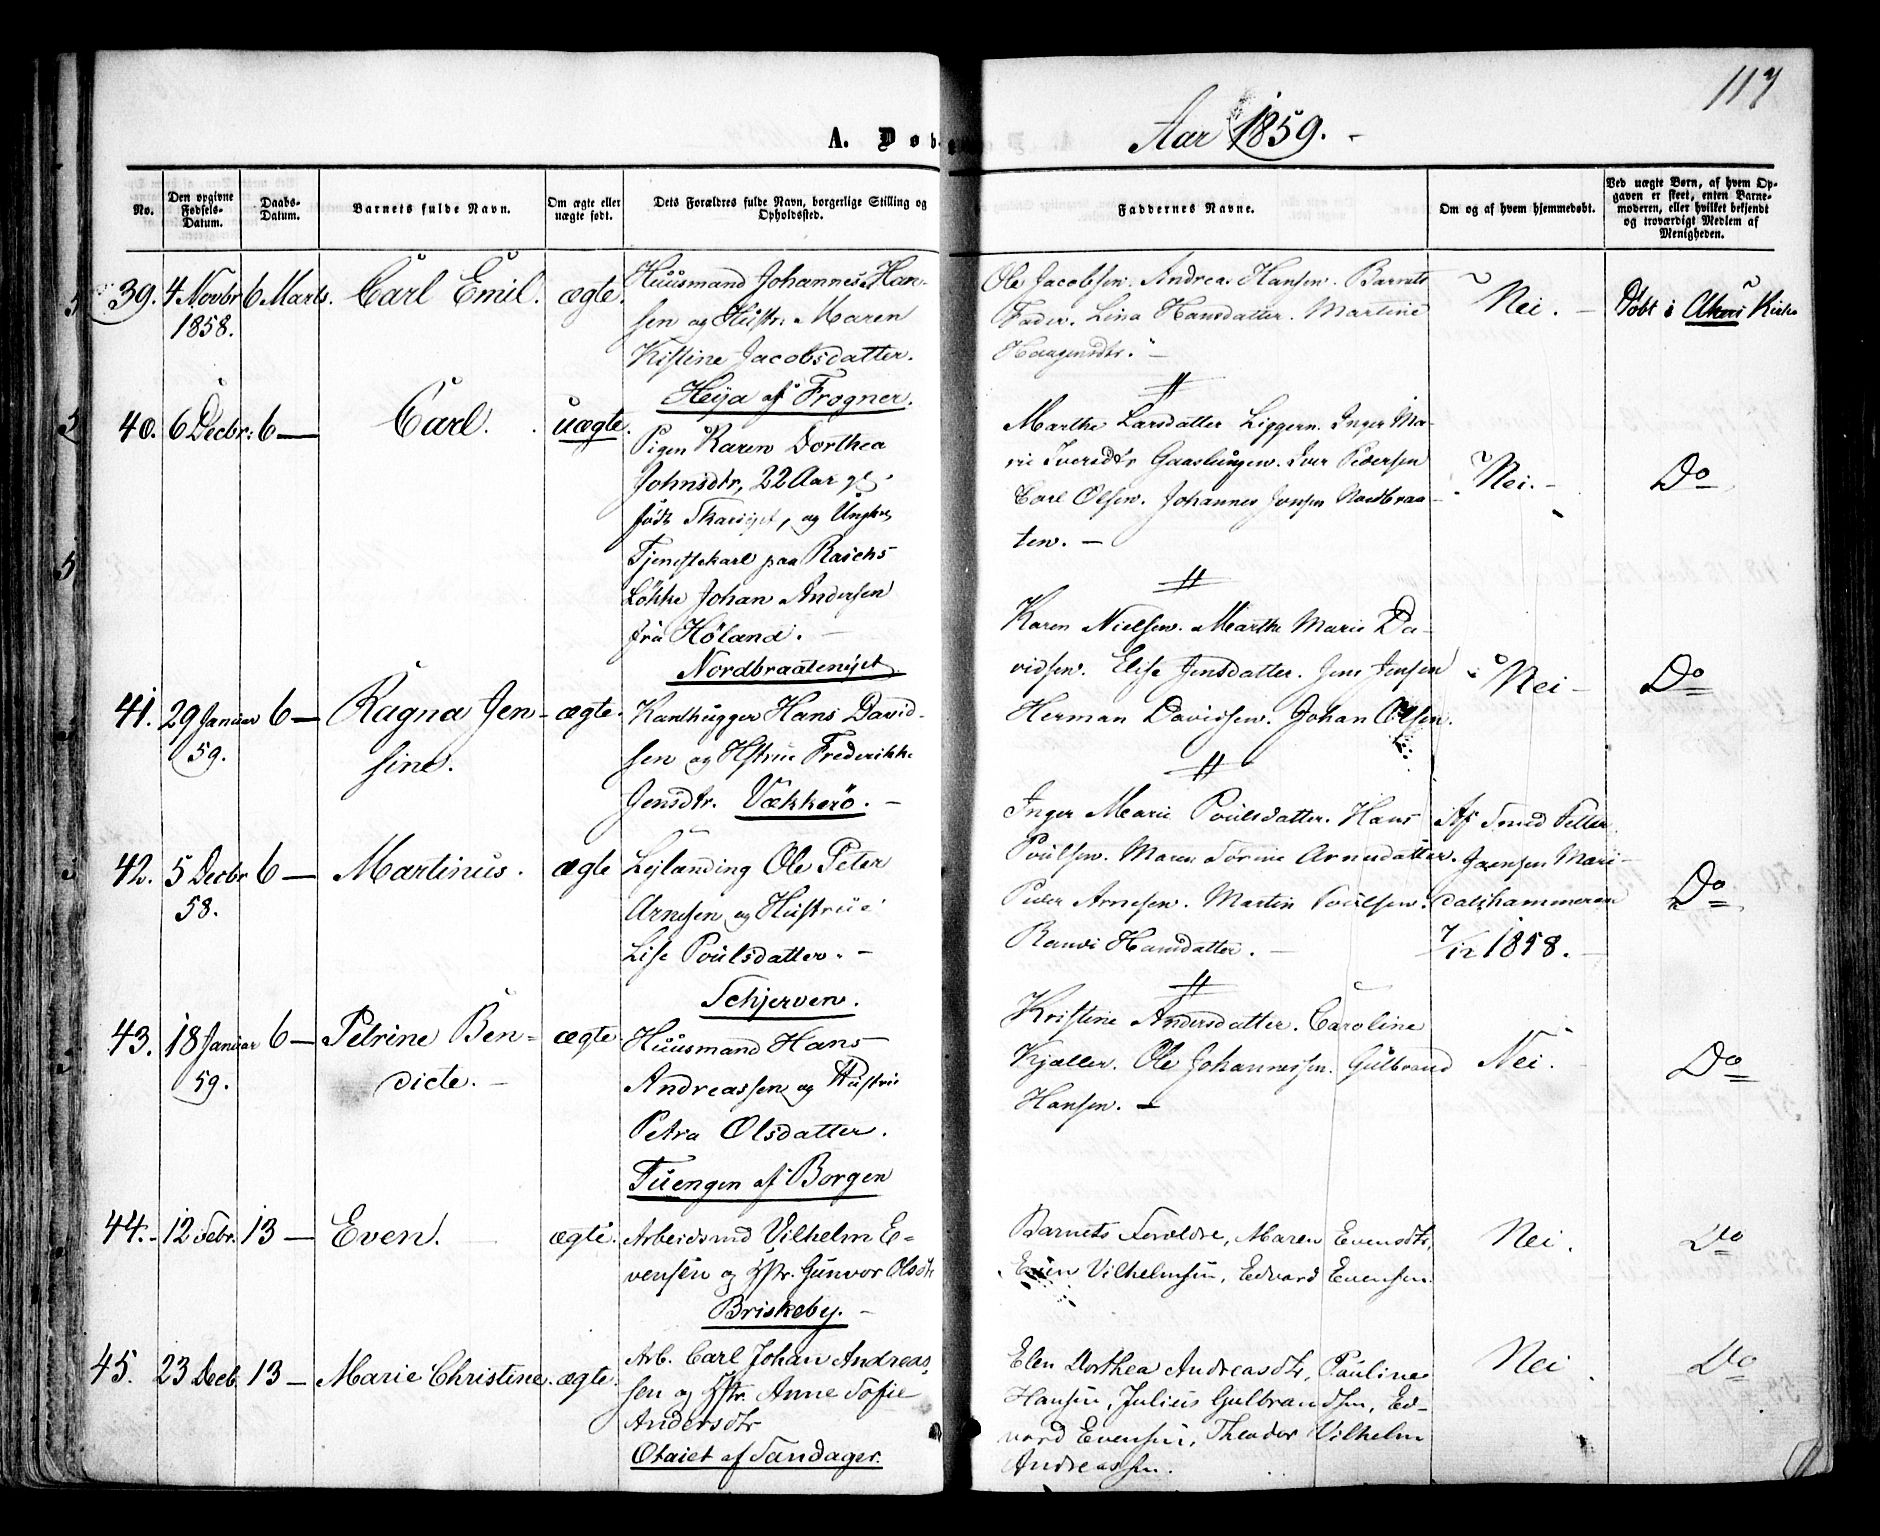 117
A. Døb
Aar 1859.
No.
Den opgivne Fødsels-Datum.
Daabs-Datum.
Barnets fulde Navn.
Om ægte eller uægte født.
Dets Forældres fulde Navn, borgerlige Stilling og Opholdssted.
Faddernes Navne.
Om og af hvem hjemmedøbt.
Ved uægte Børn, af hvem Opgaven er skeet, enten Barnemoderen, eller hvilket bekjendt og troværdigt Medlem af Menigheden.
39. 4 Novbr 6 Marts. Carl Emil. ægte.
1858.
Huusmand Johannes Han-
sen og Hustr. Maren
Kistine Jacobsdatter.
Heya af Frogner.
Ole Jacobsen. Andrea Hansen. Barnets
Fader. Lina Hansdatter. Martine
Haagensdtr. —
Nei. —
Døbt i Akers Kirke
40. 6 Decbr: 6 — Carl. uægte.
Pigen Karen Dorthea
Johnsdtr, 22 Aar
født, og Ungkr,
Tjenestekarl paa Raschs
Løkke Johan Andersen
fra Høland. —
Nordbraatenejet
Marthe Larsdatter Inger Ma-
rie Iversdtr Gaaslungen. Iver Pedersen
Carl Olsen. Johannes Jonsen Nordbraa-
ten. —
Nei. —
Do
41. 29 Januar 6 — Ragna Jen- ægte.
59. sine.
Kanthugger Hans David-
sen og Hstrue Frederikke
Jensdtr. Vækkerö. —
Karen Nielsen. Marthe Marie Da-
vidsen. Elise Jensdatter. Jens Jensen
Herman Davidsen. Johan Olsen.
Nei —
Do
42. 5 Decbr 6 — Martinus. ægte
58.
Lejlænding Ole Peter
Arnesen og Hustrue
Lise Poulsdatter. —
Schjerven.
Inger Marie Poulsdatter. Hans
Poulsen. Maren Sørine Arnesdatter.
Peder Arnesen. Martin Poulsen.
Ranvi Hansdatter. —
Af Smed Petter
Jaensen Mari-
dalshammeren
7/12 1858. —
Do
43. 18 Januar 6 — Petrine Ben- ægte
59. dicte. —
Huusmand Hans
Andreassen og Hustru
Petra Olsdatter.
Tuengen af Borgen
Kristine Andersdatter. Caroline
Kjøller. Ole Johannessen. Gulbrand
Hansen. —
Nei.
Do
44. 12 Febr. 13 — Even. ægte.
Arbeidsmd Vilhelm E-
vensen og Hstr. Gunvor Olsdtr
Briskeby. —
Barnets Forældre, Maren Evensdtr,
Even Vilhelmsen, Edvard Evensen.
Nei.
Do
45. 23 Decb. 13 — Marie Christine. ægte.
Arb. Carl Johan Andreas-
sen og Hstr. Anne Sofie
Andersdtr
Otaiet af Sandager.
Elen Dorthea Andreasdtr, Pauline
Hansen, Julius Gulbrandsen, Ed-
vard Evensen, Theodor Vilhelm
Andreassen.
Nei
Do